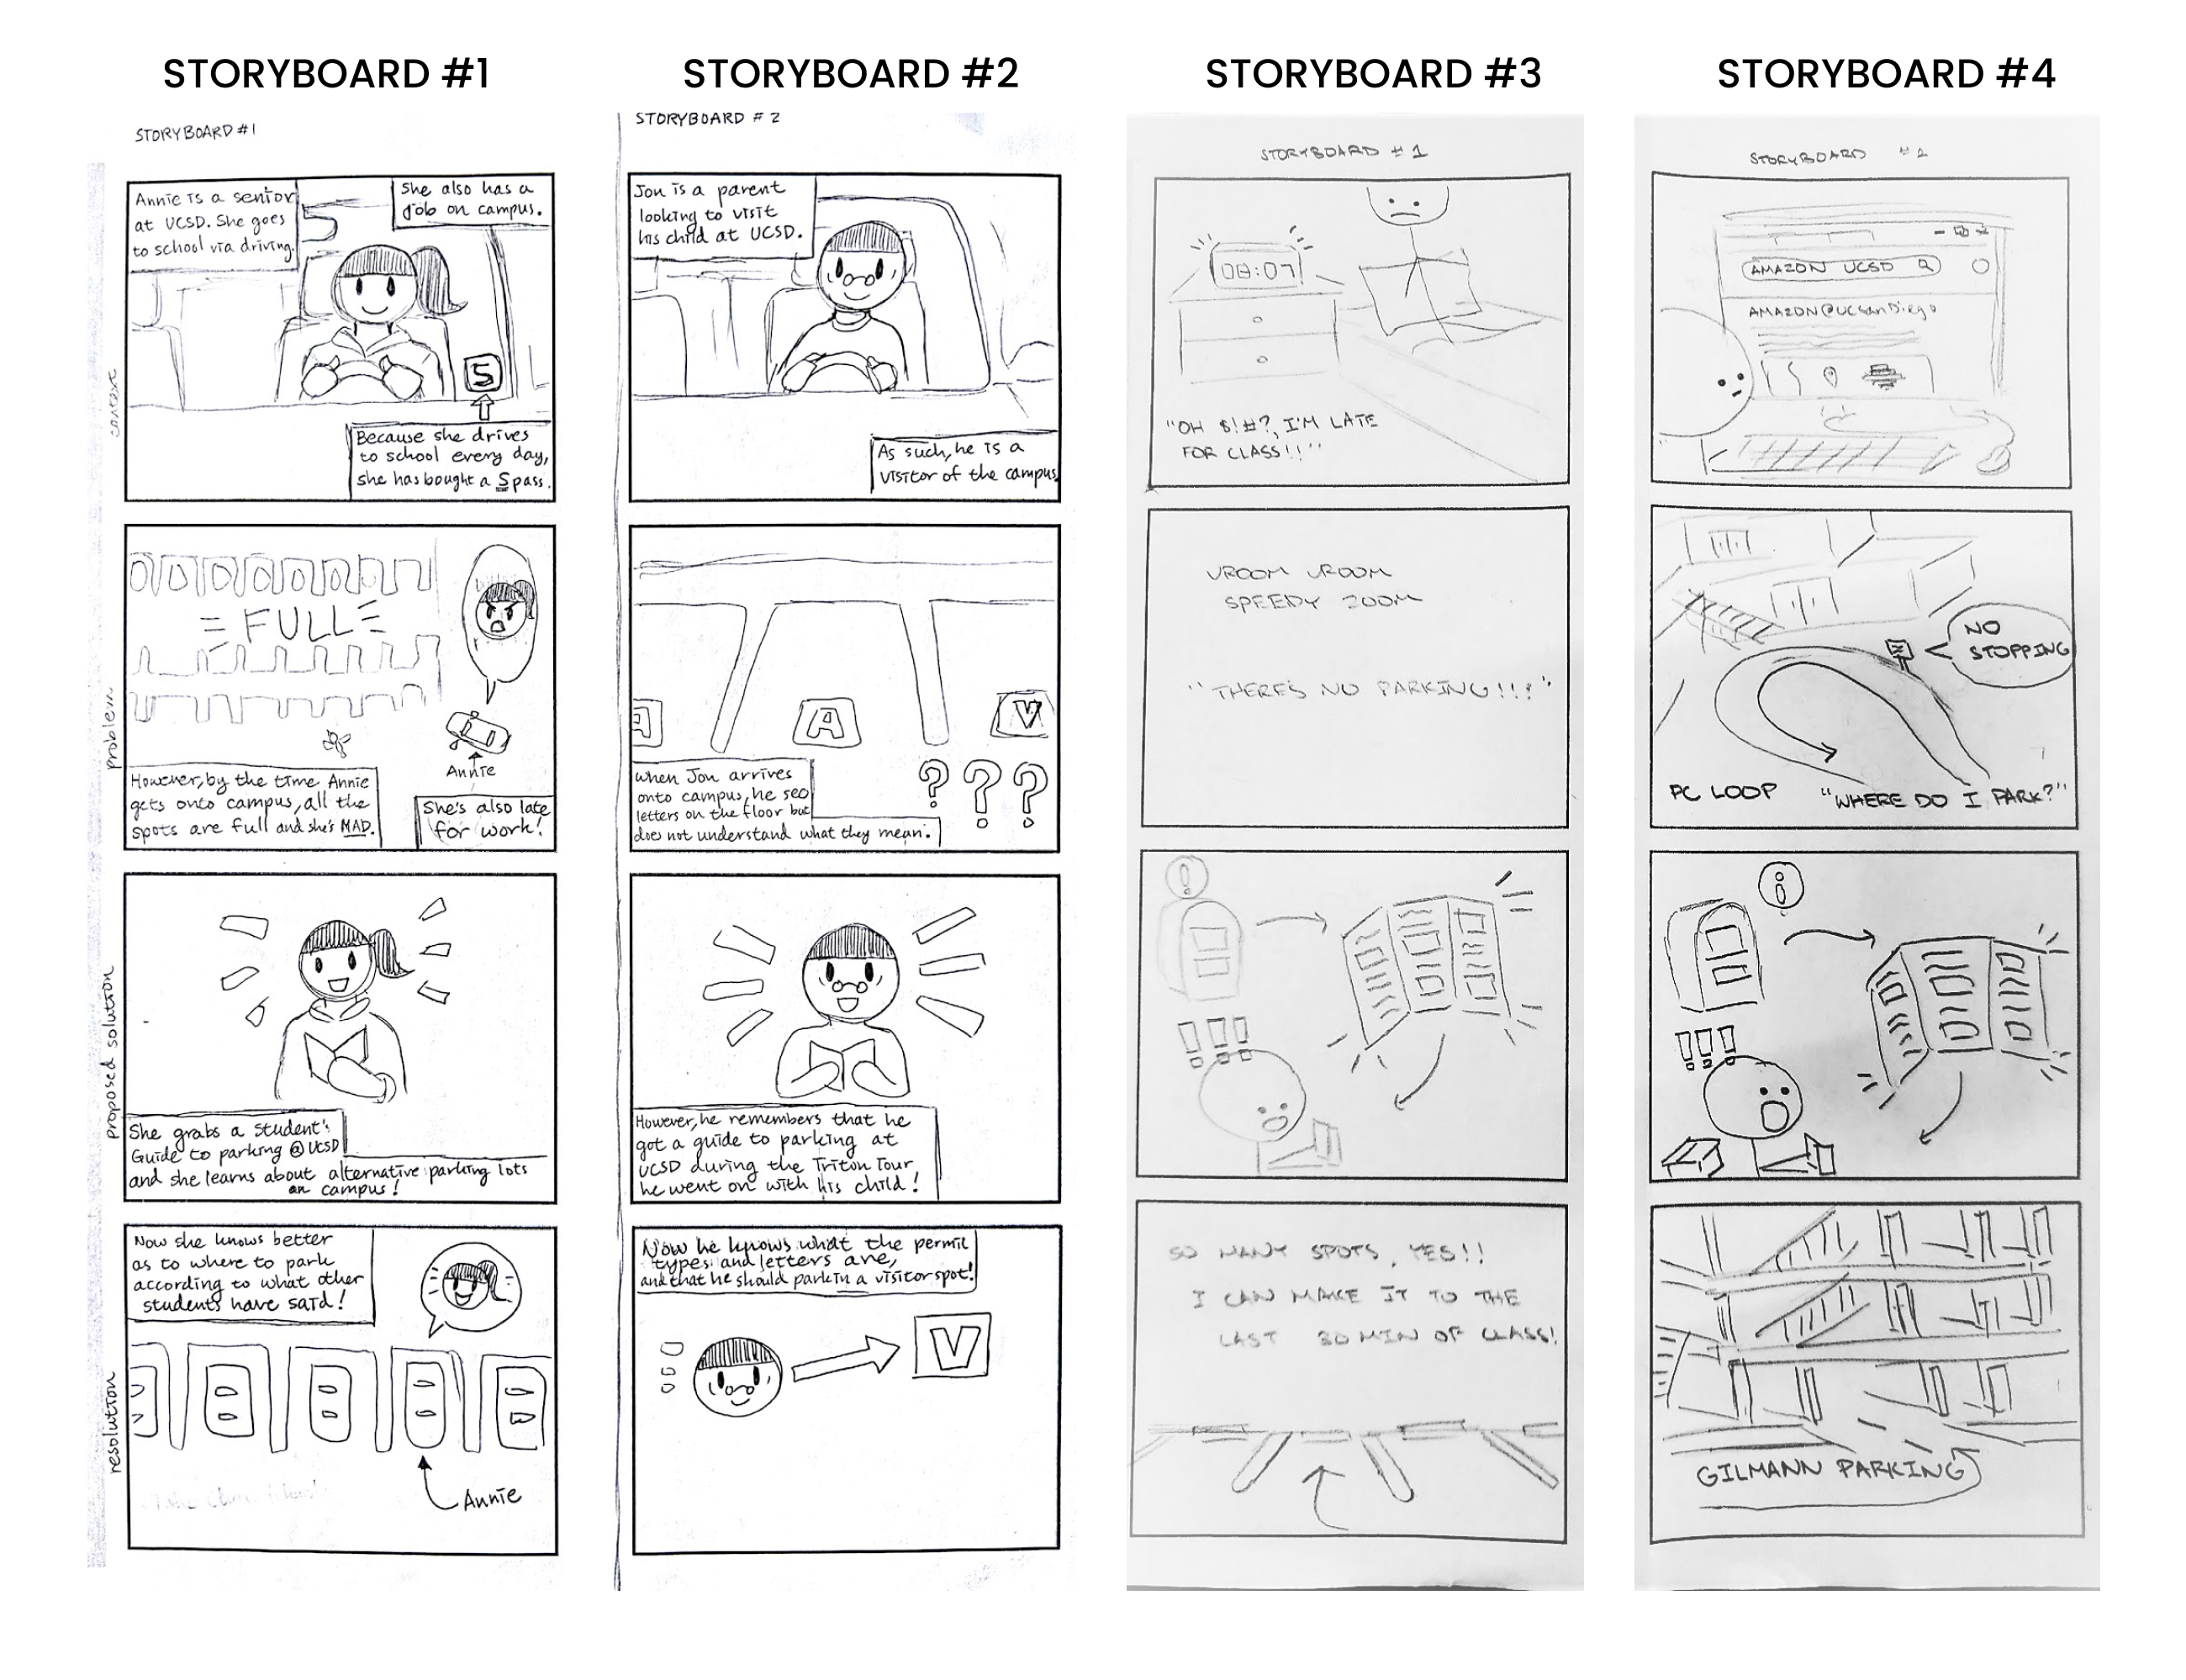 STORYBOARD #1
STORYBOARD #1
context
Annie is a senior
at UCSD. She goes
to school via driving.
She also has a
job on campus.
S
Because she drives
to school every day,
she has bought a S pass.
problem
FULL
Annie
However, by the time Annie
gets onto campus, all the
spots are full and she's MAD.
She's also late
for work!
proposed solution
She grabs a student's
Guide to parking @ UCSD
and she learns about alternative parking lots
on campus!
resolution
Now she knows better
as to where to park
according to what other
students have said!
Annie
STORYBOARD #2
STORYBOARD # 2
Jon is a parent
looking to visit
his child at UCSD.
As such, he is a
visitor of the campus
A
V
When Jon arrives
onto campus, he see
letters on the floor but
does not understand what they mean.
? ? ?
However, he remembers that he
got a guide to parking at
UCSD during the Triton Tour
he went on with his child!
Now he knows what the permit
types and letters are,
and that he should park in a visitor spot!
V
STORYBOARD #3
STORYBOARD # 1
08:07
"OH $!#?, I'M LATE
FOR CLASS!!"
VROOM VROOM
SPEEDY ZOOM
"THERE'S NO PARKING!!!"
!
!!!
SO MANY SPOTS, YES!!
I CAN MAKE IT TO THE
LAST 30 MIN OF CLASS!
STORYBOARD #4
STORYBOARD #2
AMAZON UCSD
AMAZON@UCsanDiego
NO
STOPPING
PC LOOP
"WHERE DO I PARK?"
i
!!!
GILMANN PARKING